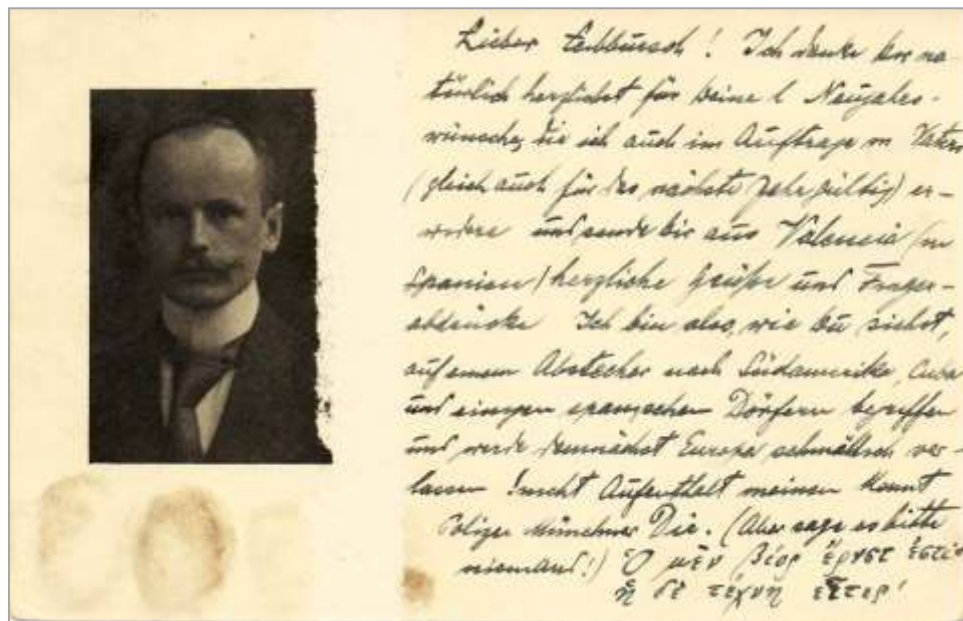 Lieber ! Ich danke Dir na-
türlich herzlichst für Deine l Neujahrs-
wünsche, die ich auch im Auftrage m Vaters
(gleich auch für das nächste Jahr gültig) er-
widere und sende Dir aus Valencia (in
Spanien) herzliche Grüße und Finger-
abdrücke Ich bin also, wie Du siehst,
auf einem Abstecher nach Südamerika, Cuba
und einigen spanischen Dörfern begriffen
und werde demnächst Europa schmählich ver-
lassen Aufenthalt meinen
Münchner Die. (Aber sage es bitte
niemand!) Ὁ μὲν βίος ἔρνστ ἐστίν
ἡ δὲ τέχνη